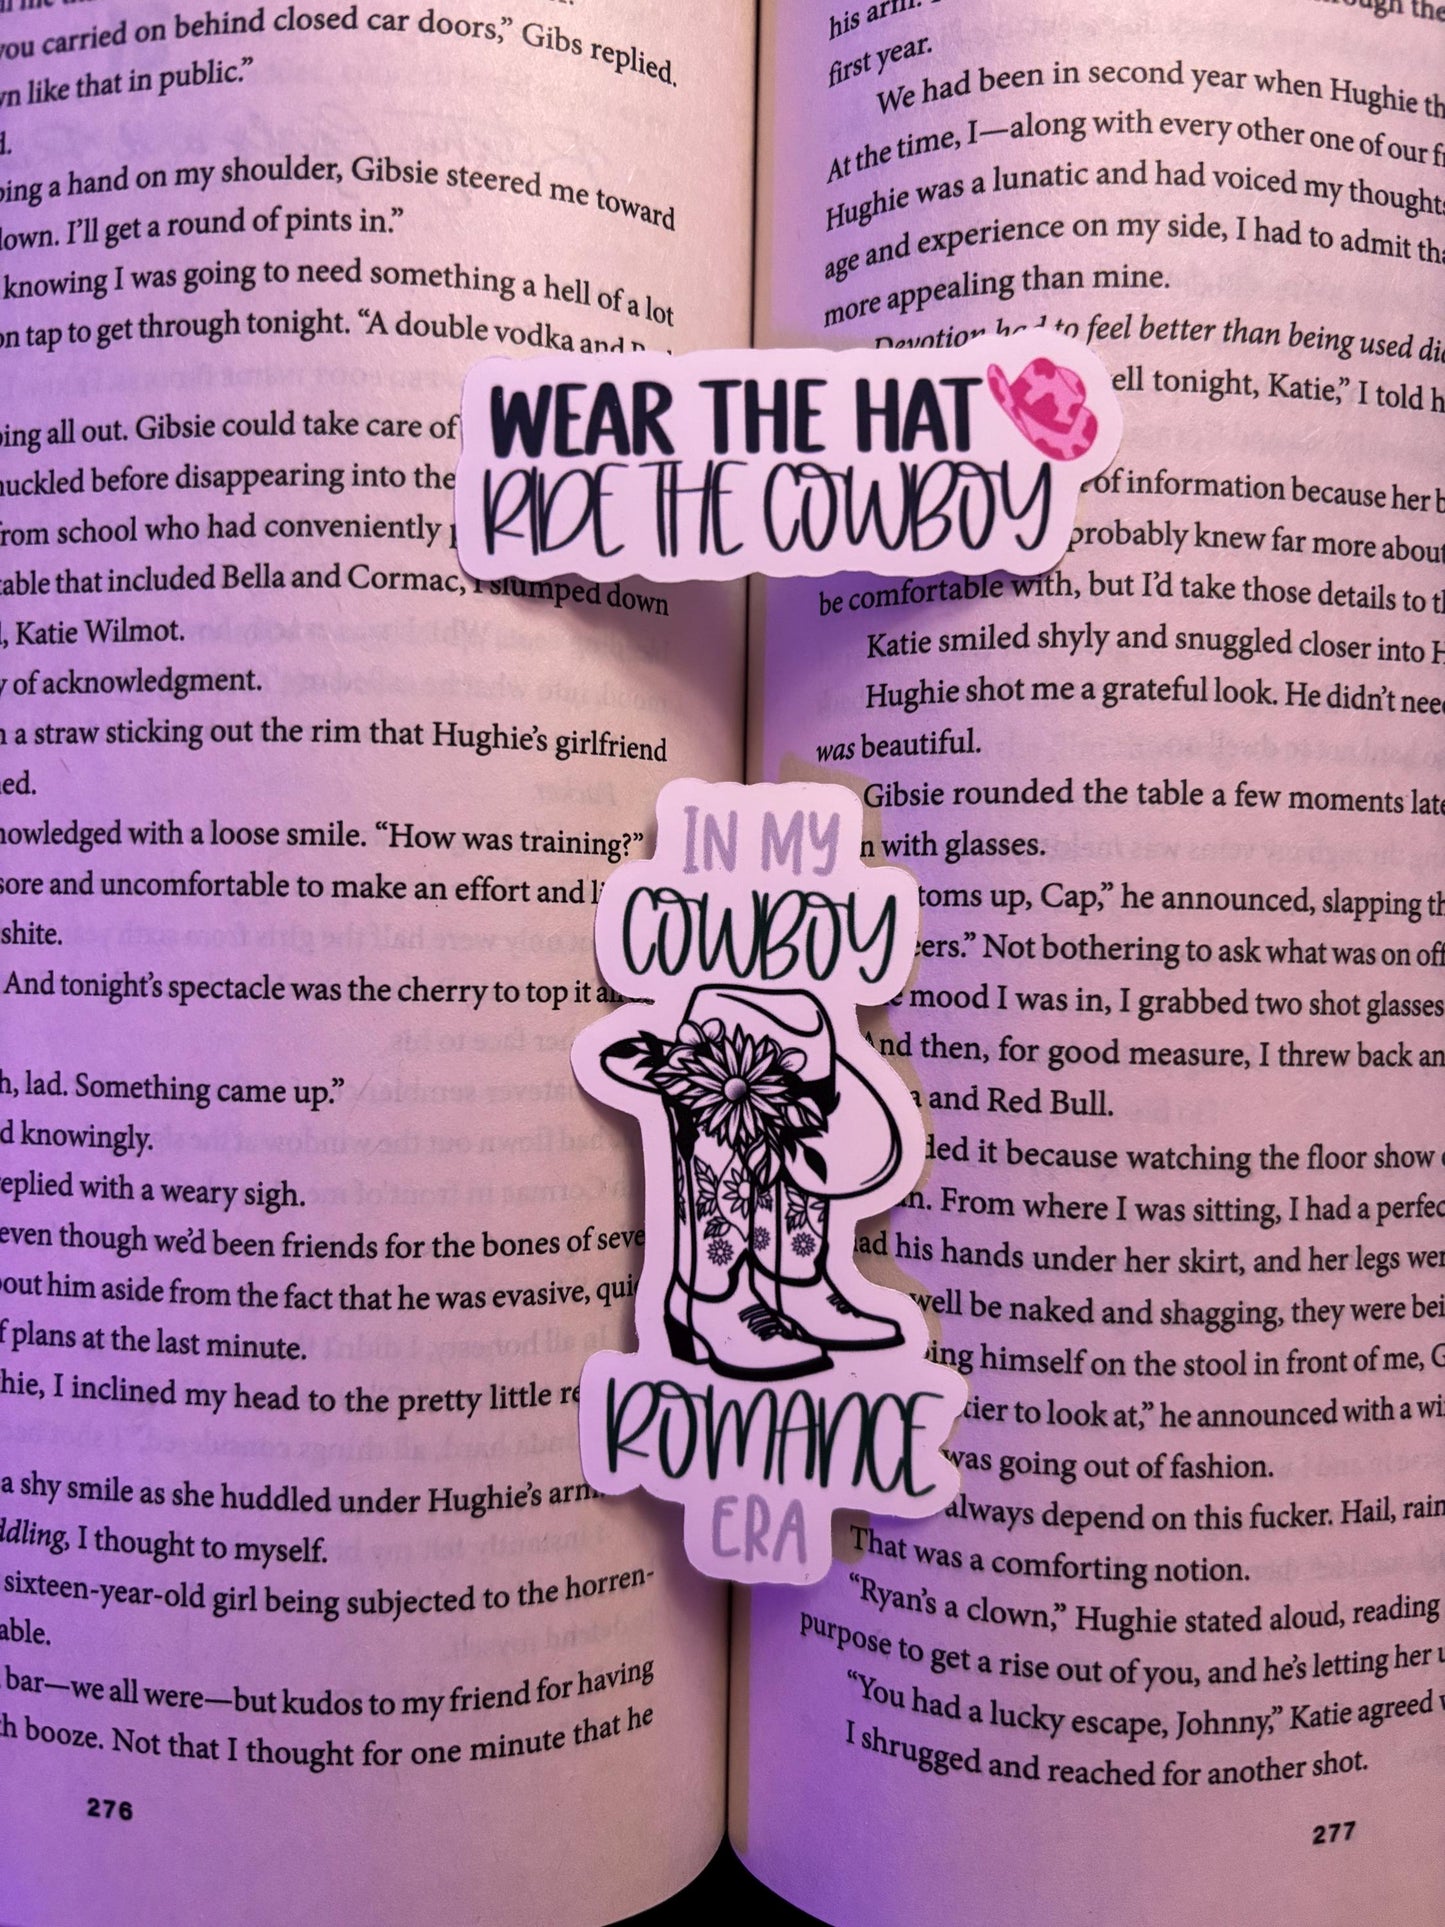 you carried on behind closed car doors,” Gibs replied.
like that in public.”
a hand on my shoulder, Gibsie steered me toward
I’ll get a round of pints in.”
knowing I was going to need something a hell of a lot
on tap to get through tonight. “A double vodka and
all out. Gibsie could take care of
before disappearing into the
from school who had conveniently
table that included Bella and Cormac, I slumped down
Katie Wilmot.
of acknowledgment.
a straw sticking out the rim that Hughie’s girlfriend
with a loose smile. “How was training?”
sore and uncomfortable to make an effort and
shite.
And tonight’s spectacle was the cherry to top it
lad. Something came up.”
knowingly.
replied with a weary sigh.
even though we’d been friends for the bones of
him aside from the fact that he was evasive,
plans at the last minute.
I inclined my head to the pretty little
a shy smile as she huddled under Hughie’s
I thought to myself.
sixteen-year-old girl being subjected to the horren-
bar—we all were—but kudos to my friend for having
booze. Not that I thought for one minute that he
276
WEAR THE HAT
RIDE THE COWBOY
IN MY
COWBOY
ROMANCE
ERA
his arm.
first year.
We had been in second year when Hughie
At the time, I—along with every other one of our
Hughie was a lunatic and had voiced my thoughts
age and experience on my side, I had to admit
more appealing than mine.
Devotion had to feel better than being used
tonight, Katie,” I told
of information because her
probably knew far more about
be comfortable with, but I’d take those details to
Katie smiled shyly and snuggled closer into
Hughie shot me a grateful look. He didn’t
was beautiful.
Gibsie rounded the table a few moments
with glasses.
up, Cap,” he announced, slapping
Not bothering to ask what was on
mood I was in, I grabbed two shot glasses
And then, for good measure, I threw back
and Red Bull.
it because watching the floor show
From where I was sitting, I had a
his hands under her skirt, and her legs
well be naked and shagging, they were
himself on the stool in front of me,
to look at,” he announced with a
was going out of fashion.
always depend on this fucker. Hail,
That was a comforting notion.
“Ryan’s a clown,” Hughie stated aloud, reading
purpose to get a rise out of you, and he’s letting her
“You had a lucky escape, Johnny,” Katie agreed
I shrugged and reached for another shot.
277